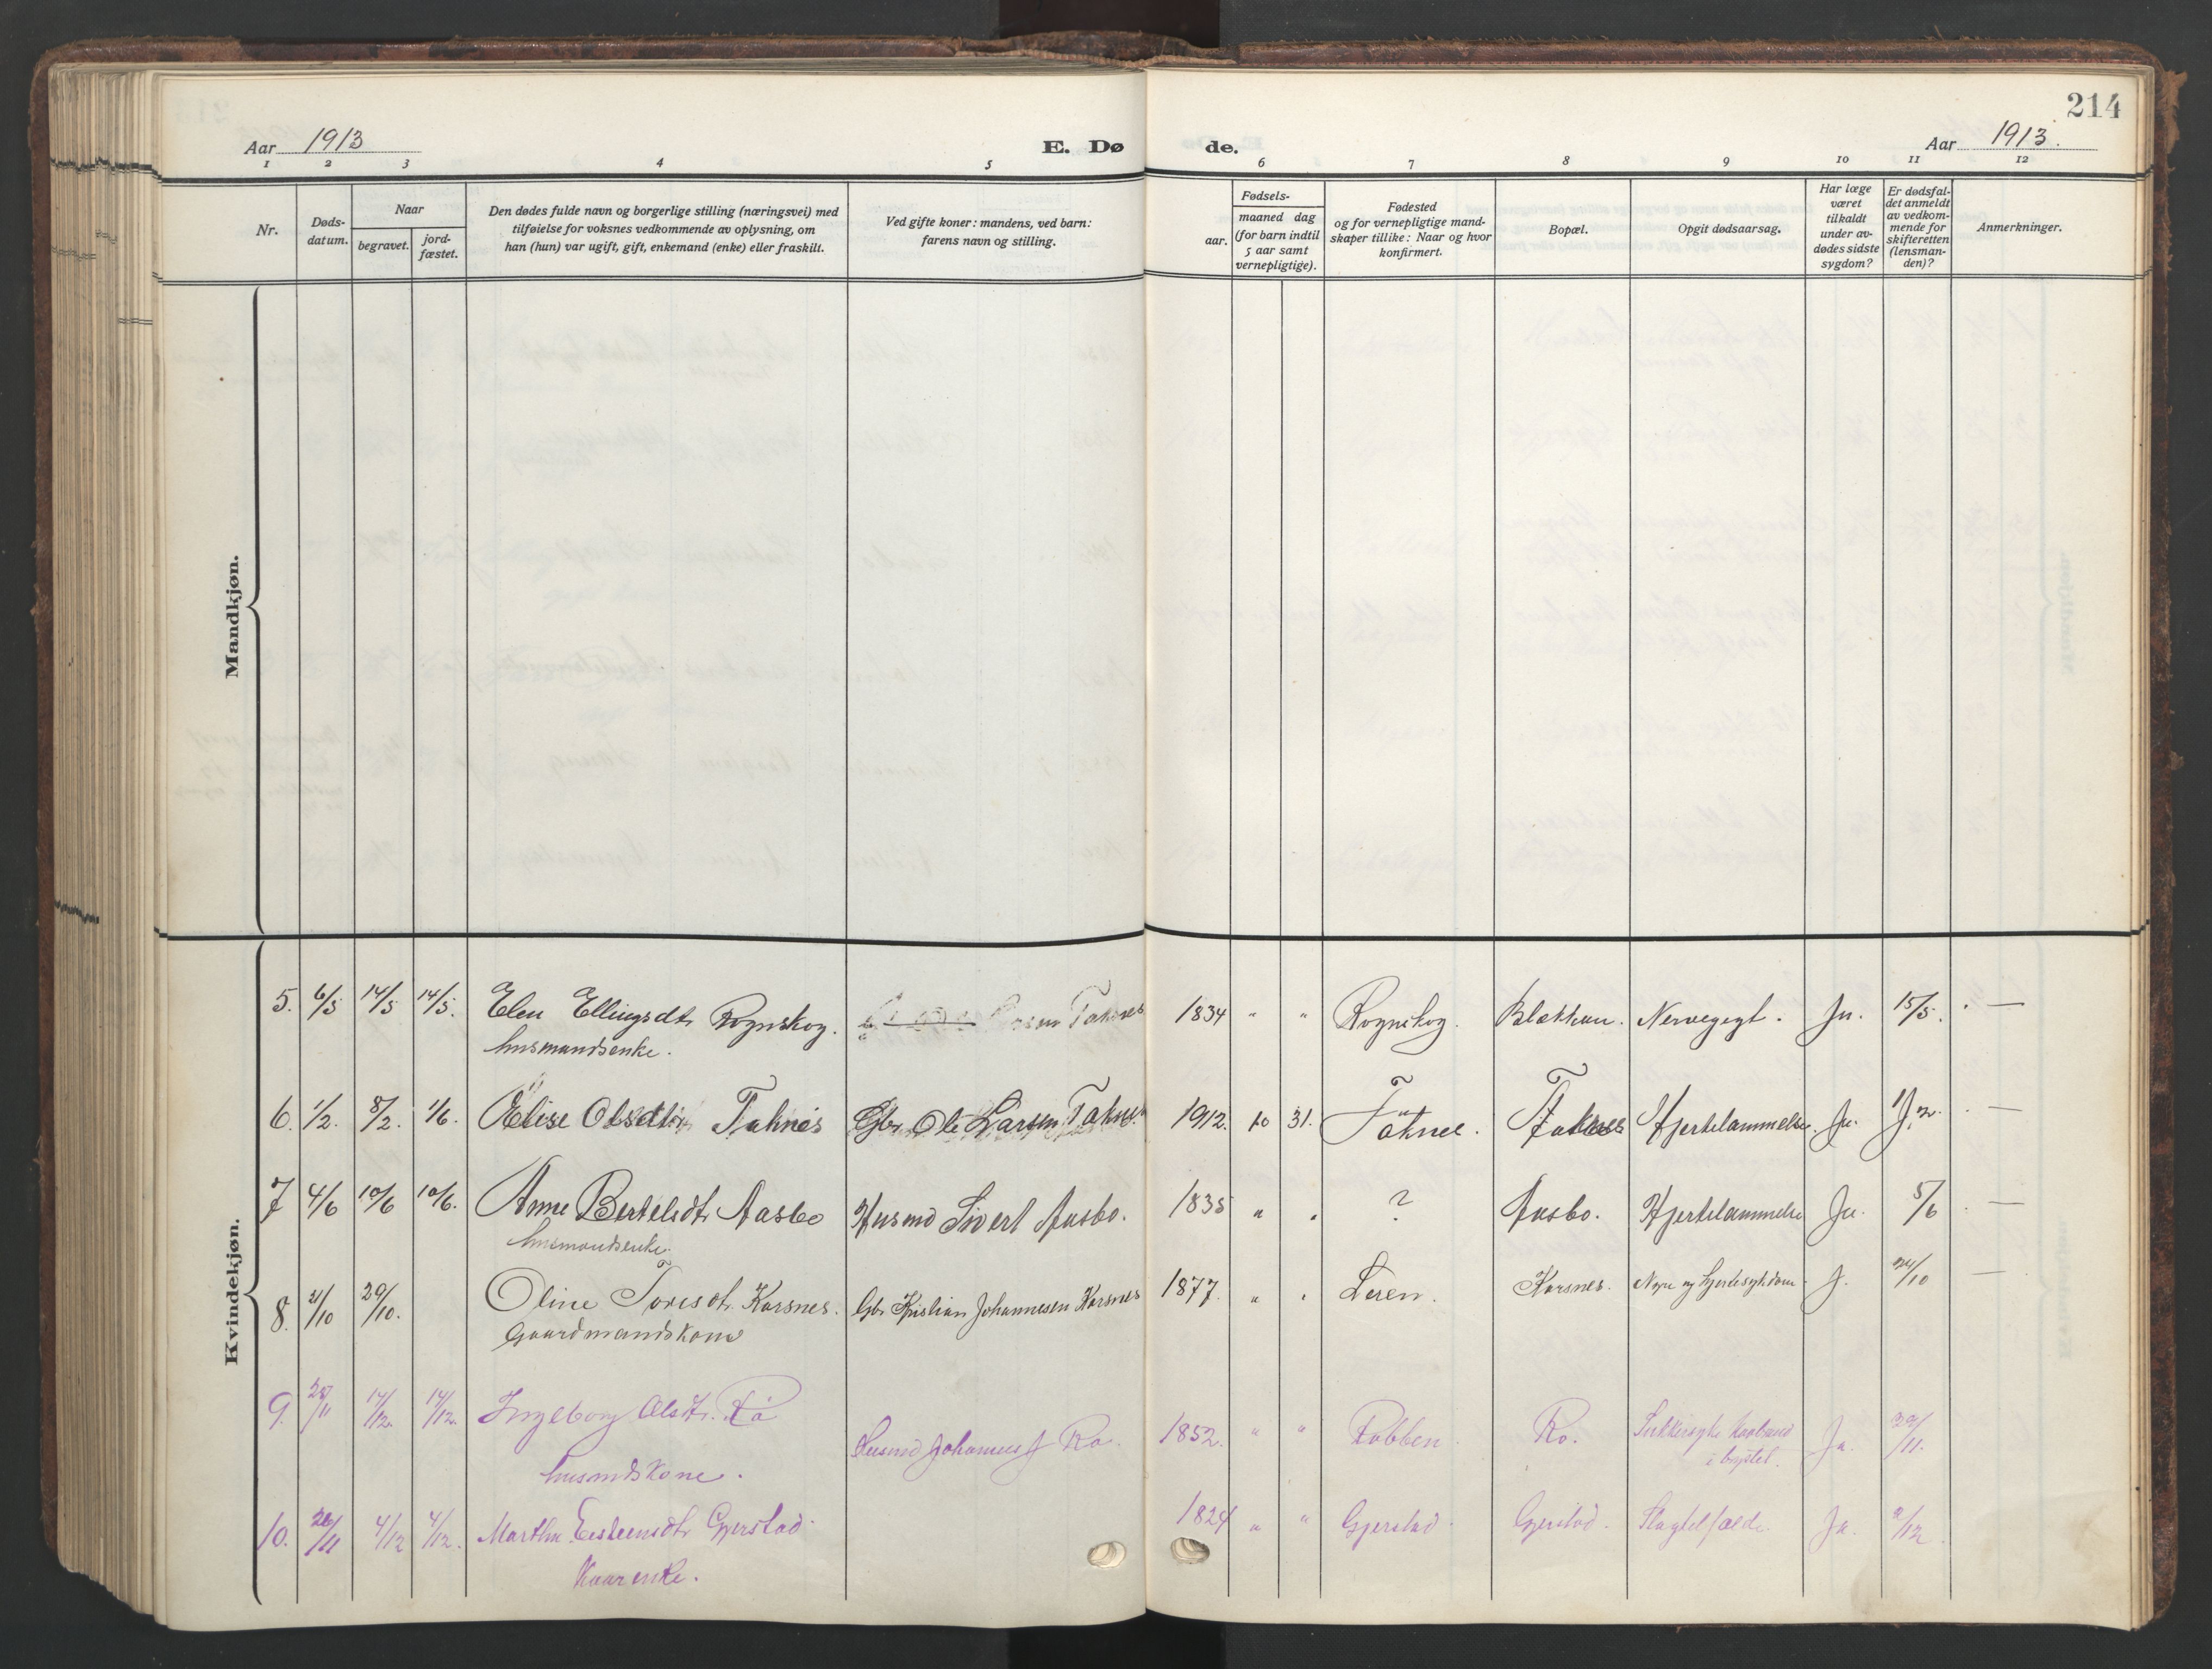 214
Aar 1913
E. Dø de.
Aar 1913.
1 2 3 4 5 6 7 8 9 10 11 12
Nr.
Døds-
datum.
Naar
begravet.
jord-
fæstet.
Den dødes fulde navn og borgerlige stilling (næringsvei) med
tilføielse for voksnes vedkommende av oplysning, om
han (hun) var ugift, gift, enkemand (enke) eller fraskilt.
Ved gifte koner: mandens, ved barn:
farens navn og stilling.
Fødsels-
aar.
maaned dag
(for barn indtil
5 aar samt
vernepligtige).
Fødested
og for vernepligtige mand-
skaper tillike: Naar og hvor
konfirmert.
Bopæl.
Opgit dødsaarsag.
Har læge
været
tilkaldt
under av-
dødes sidste
sygdom?
Er dødsfal-
det anmeldt
av vedkom-
mende for
skifteretten
(lensman-
den)?
Anmerkninger.
Mandkjøn.
Kvindekjøn.
5. 6/5 14/5 14/5. Elen Ellingsdtr Rognskog. Larsen Taknes 1834 " " Rognskog. Blekken. Nervegigt. Ja. 15/5. —
husmandsenke.
6. 1/2. 8/2. 1/6. Elise Olsdtr Taknes Gbr Ole Larsen Taknes 1912. 10 31. Taknes. Taknes Hjertelammelse. Ja. —
7 4/6 10/6 10/6. Anne Bertelsdtr Aasbo Husmd Sivert Aasbo. 1835 " " ? Aasbo. Hjertelammelse Ja. 5/6 —
husmandsenke.
8. 21/10 29/10. Oline Toresdtr. Korsnes. Gbr Kristian Johannesen Korsnes 1877. " " Leren. Korsnes. Nyre og hjertesykdom J. 24/10 —
Gaardmandskone
9. 25/11 14/12. 14/12. Ingeborg Olsdtr. Rø
Husmd Johannes J Rø. 1852. " " Rabben. Rø. Sukkersyke Koldbrand
i brystet. Ja. 29/11.
husmdskone.
10. 26/11 4/12 4/12. Martha Eisteensdtr Gjerstad. 1824 " " Gjerstad. Gjerstad. Slagtilfælde. Ja. 2/12.
Kaarenke.